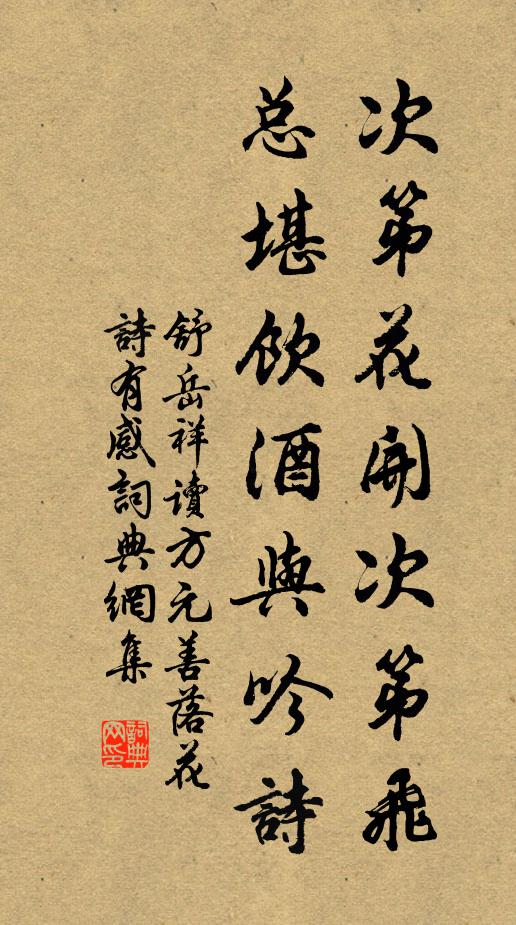 次第花開次第飛
总堪飲酒與吟詩
舒岳祥讀方元善落花
詩有感詞典網集
詞典
网印